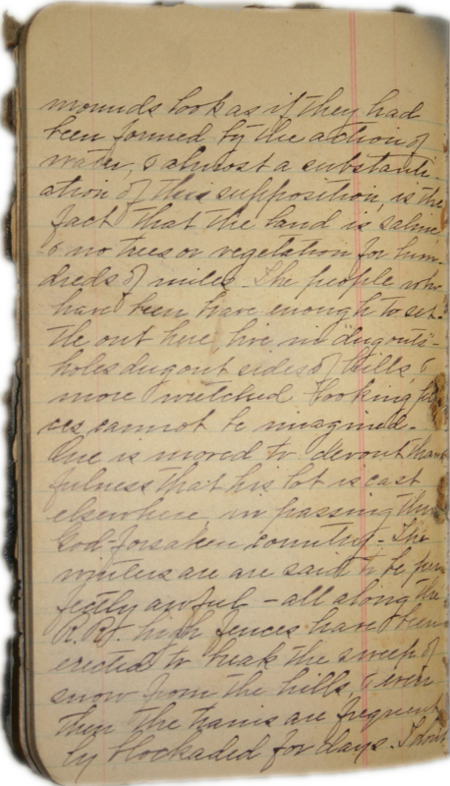 mounds look as if they had
been formed by the action of
water, & almost a substanti-
ation of this supposition, is the
fact that the land is saline
& no trees or vegetation for hun-
dreds of miles. The people who
have been brave enough to set-
tle out here, live in "dugouts"-
holes dug out sides of hills, &
more wretched looking pla
ces cannot be imagined.
One is moved to devout thank
fulness that his lot is cast
elsewhere in passing thro
God-forsaken country - The
winters are are said to be per
fectly awful - all along the
R.R. high fences have been
erected to break the sweep of
snow from the hills, & even
then the trains are frequent
ly blockaded for days. I don't